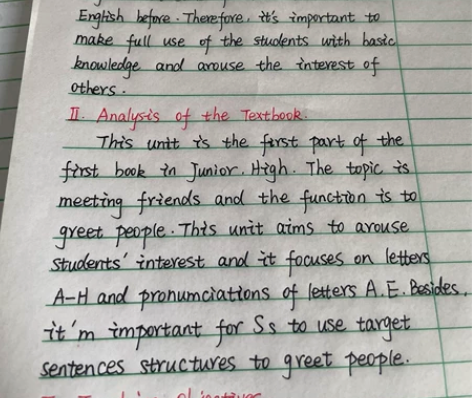 English before. Therefore, it's important to
make full use of the students with basic
knowledge and arouse the interest of
others.
II. Analysis of the Textbook.
This unit is the first part of the
first book in Junior High. The topic is
meeting friends and the function is to
greet people. This unit aims to arouse
students' interest and it focuses on letters
A-H and pronumciations of letters A.E. Besides,
it'm important for Ss to use target
sentences structures to greet people.